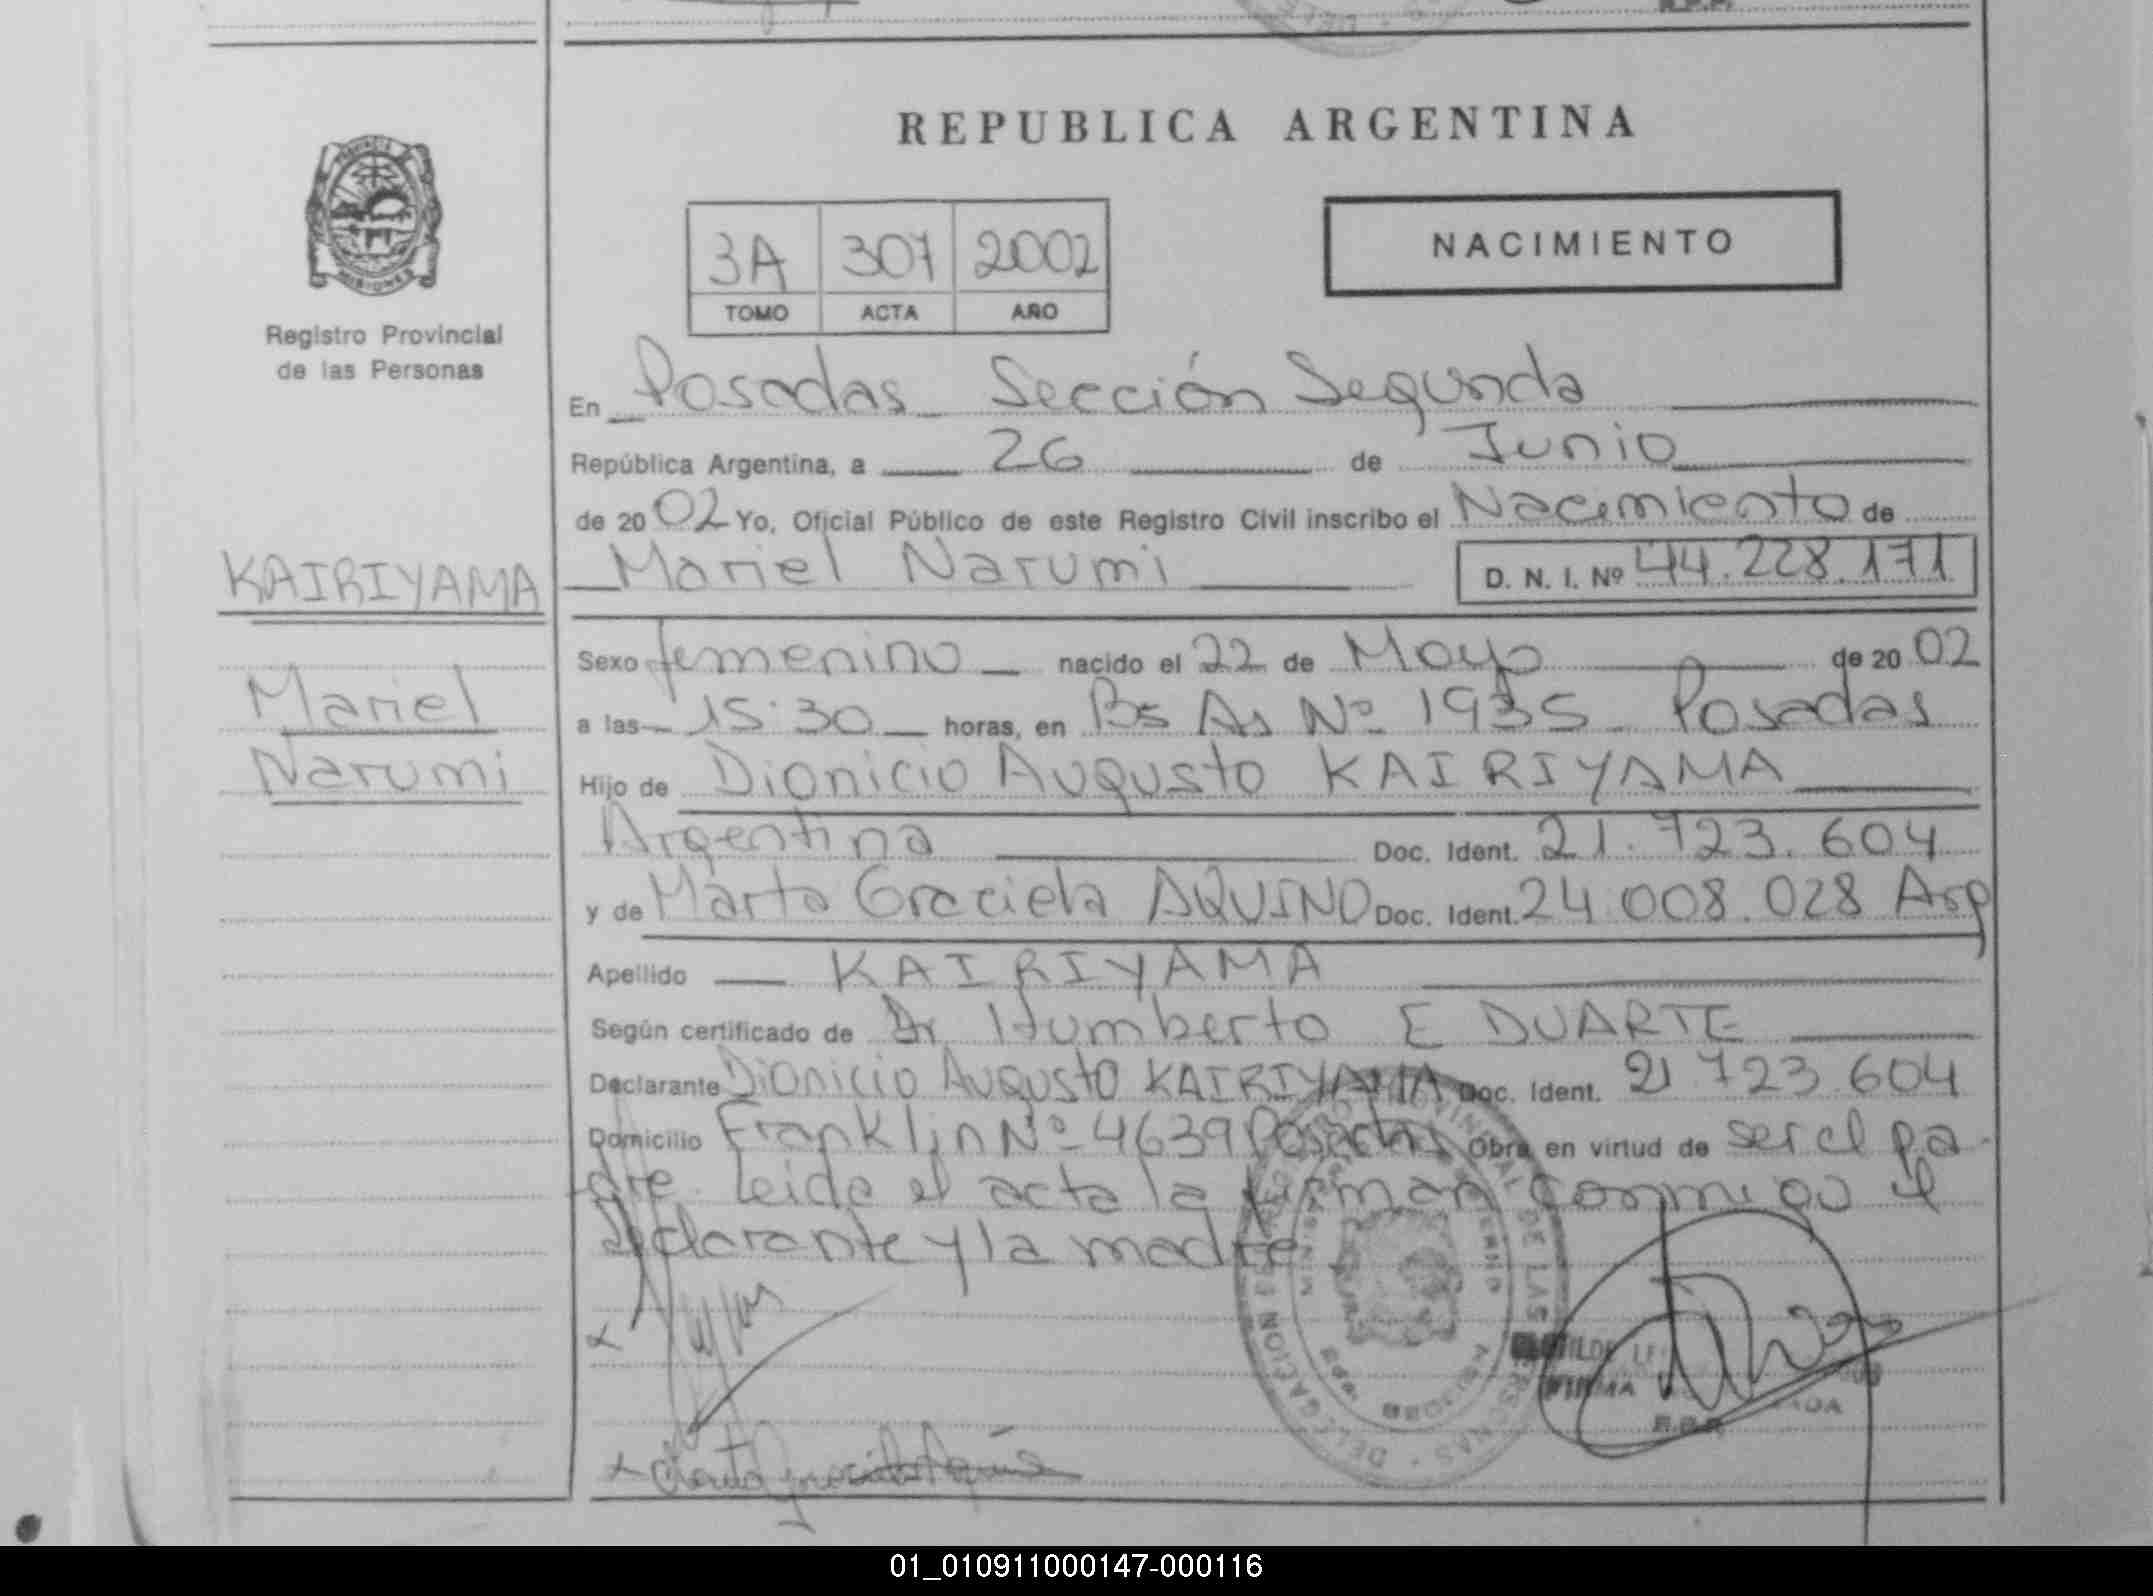 REPUBLICA ARGENTINA
NACIMIENTO
3A 307 2002
TOMO ACTA AÑO
PROVINCIA
MISIONES
Registro Provincial
de las Personas
En Posadas Sección Segunda
República Argentina, a 26 de Junio
de 2002 Yo, Oficial Público de este Registro Civil inscribo el Nacimiento de
Mariel Narumi D. N. I. Nº 44.228.171
KAIRIYAMA
Mariel
Narumi
Sexo femenino nacido el 22 de Mayo de 2002
a las 15:30 horas, en Bs As Nº 1935 Posadas
Hijo de Dionicio Augusto KAIRIYAMA
Argentina Doc. Ident. 21.723.604
y de Marta Graciela AQUINO Doc. Ident. 24.008.028 Arg
Apellido KAIRIYAMA
Según certificado de Dr Humberto E DUARTE
Declarante Dionicio Augusto KAIRIYAMA Doc. Ident. 21.723.604
Domicilio Franklin Nº 4639 Posadas Obra en virtud de ser el pa-
dre. Leida el acta la firman conmigo el
declarante y la madre
DELEGACION
DE LAS PERSONAS
FIRMA
01_010911000147-000116